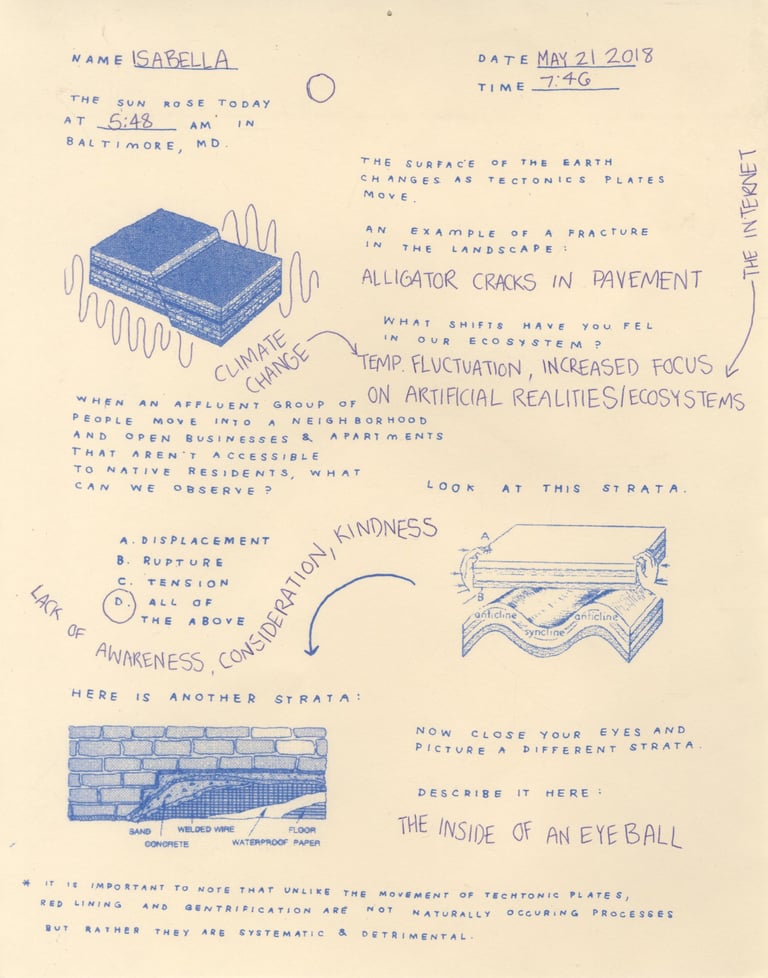 NAME ISABELLA
DATE MAY 21 2018
TIME 7:46
THE SUN ROSE TODAY
AT 5:48 AM IN
BALTIMORE, MD.
THE SURFACE OF THE EARTH
CHANGES AS TECTONICS PLATES
MOVE.
AN EXAMPLE OF A FRACTURE
IN THE LANDSCAPE:
ALLIGATOR CRACKS IN PAVEMENT
THE INTERNET
WHAT SHIFTS HAVE YOU FEL
IN OUR ECOSYSTEM?
CLIMATE
CHANGE
TEMP. FLUCTUATION, INCREASED FOCUS
ON ARTIFICIAL REALITIES/ECOSYSTEMS
WHEN AN AFFLUENT GROUP OF
PEOPLE MOVE INTO A NEIGHBORHOOD
AND OPEN BUSINESSES & APARTMENTS
THAT AREN'T ACCESSIBLE
TO NATIVE RESIDENTS, WHAT
CAN WE OBSERVE?
A. DISPLACEMENT
B. RUPTURE
C. TENSION
D. ALL OF
THE ABOVE
LACK OF AWARENESS, CONSIDERATION, KINDNESS
LOOK AT THIS STRATA.
A
B
anticline
syncline
anticline
HERE IS ANOTHER STRATA:
SAND
WELDED WIRE
FLOOR
CONCRETE
WATERPROOF PAPER
NOW CLOSE YOUR EYES AND
PICTURE A DIFFERENT STRATA.
DESCRIBE IT HERE:
THE INSIDE OF AN EYEBALL
* IT IS IMPORTANT TO NOTE THAT UNLIKE THE MOVEMENT OF TECHTONIC PLATES,
RED LINING AND GENTRIFICATION ARE NOT NATURALLY OCCURING PROCESSES
BUT RATHER THEY ARE SYSTEMATIC & DETRIMENTAL.